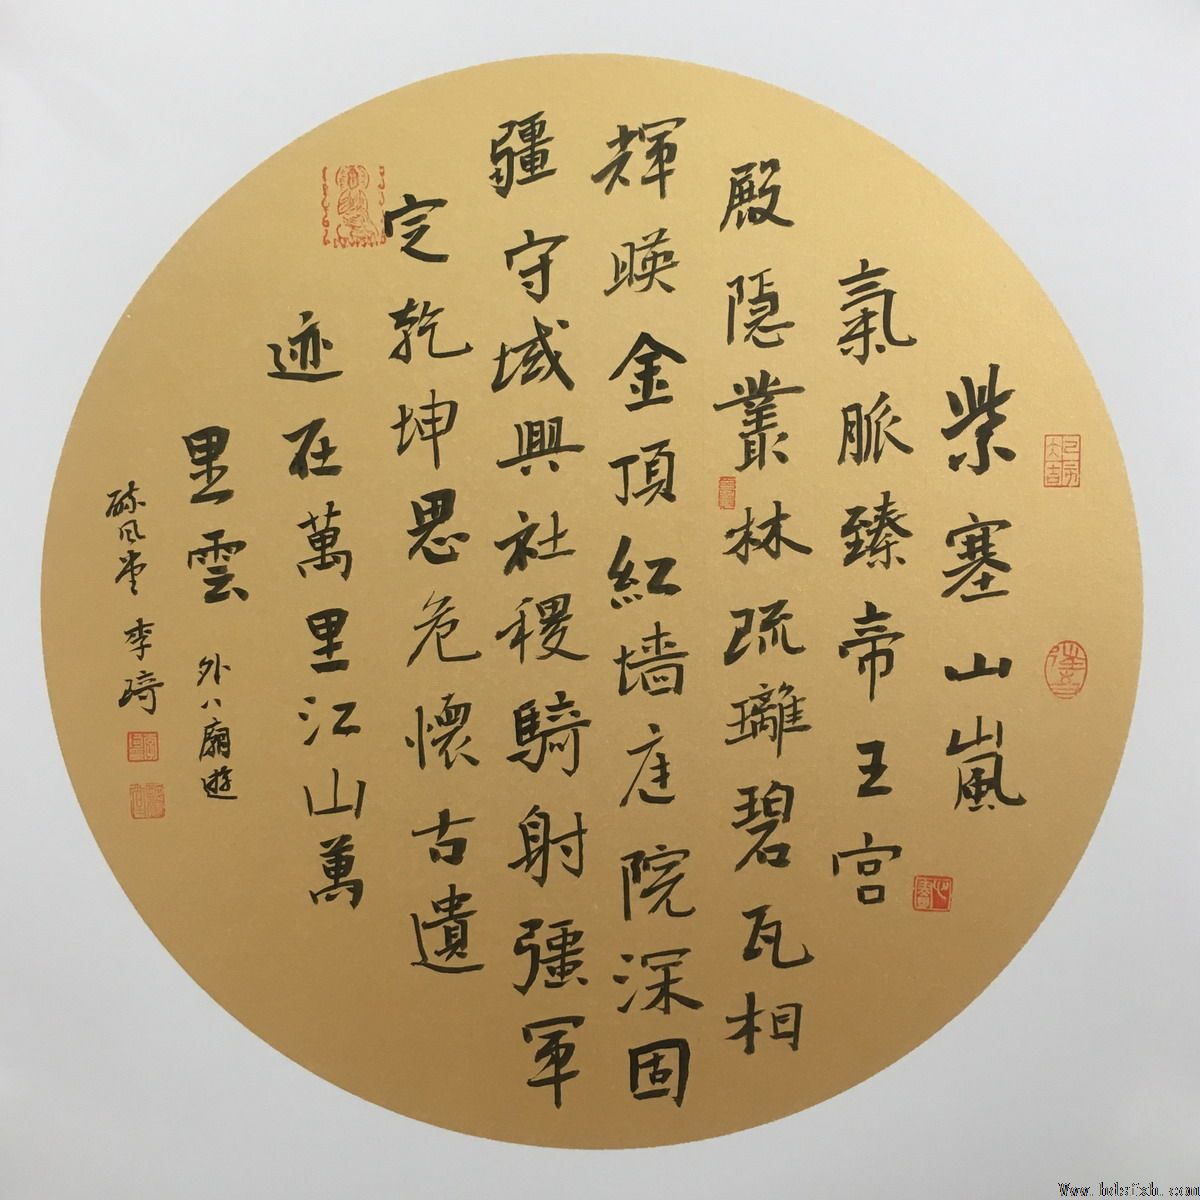 紫塞山嵐
氣脈臻帝王宮
殿隱叢林琉璃碧瓦相
輝暎金頂紅墻庭院深固
疆守域興社稷騎射彊軍
定乾坤思危懷古遺
迹在萬里江山萬
里雲
外八廟遊
風堂李琦
Www.hdsfxh.com